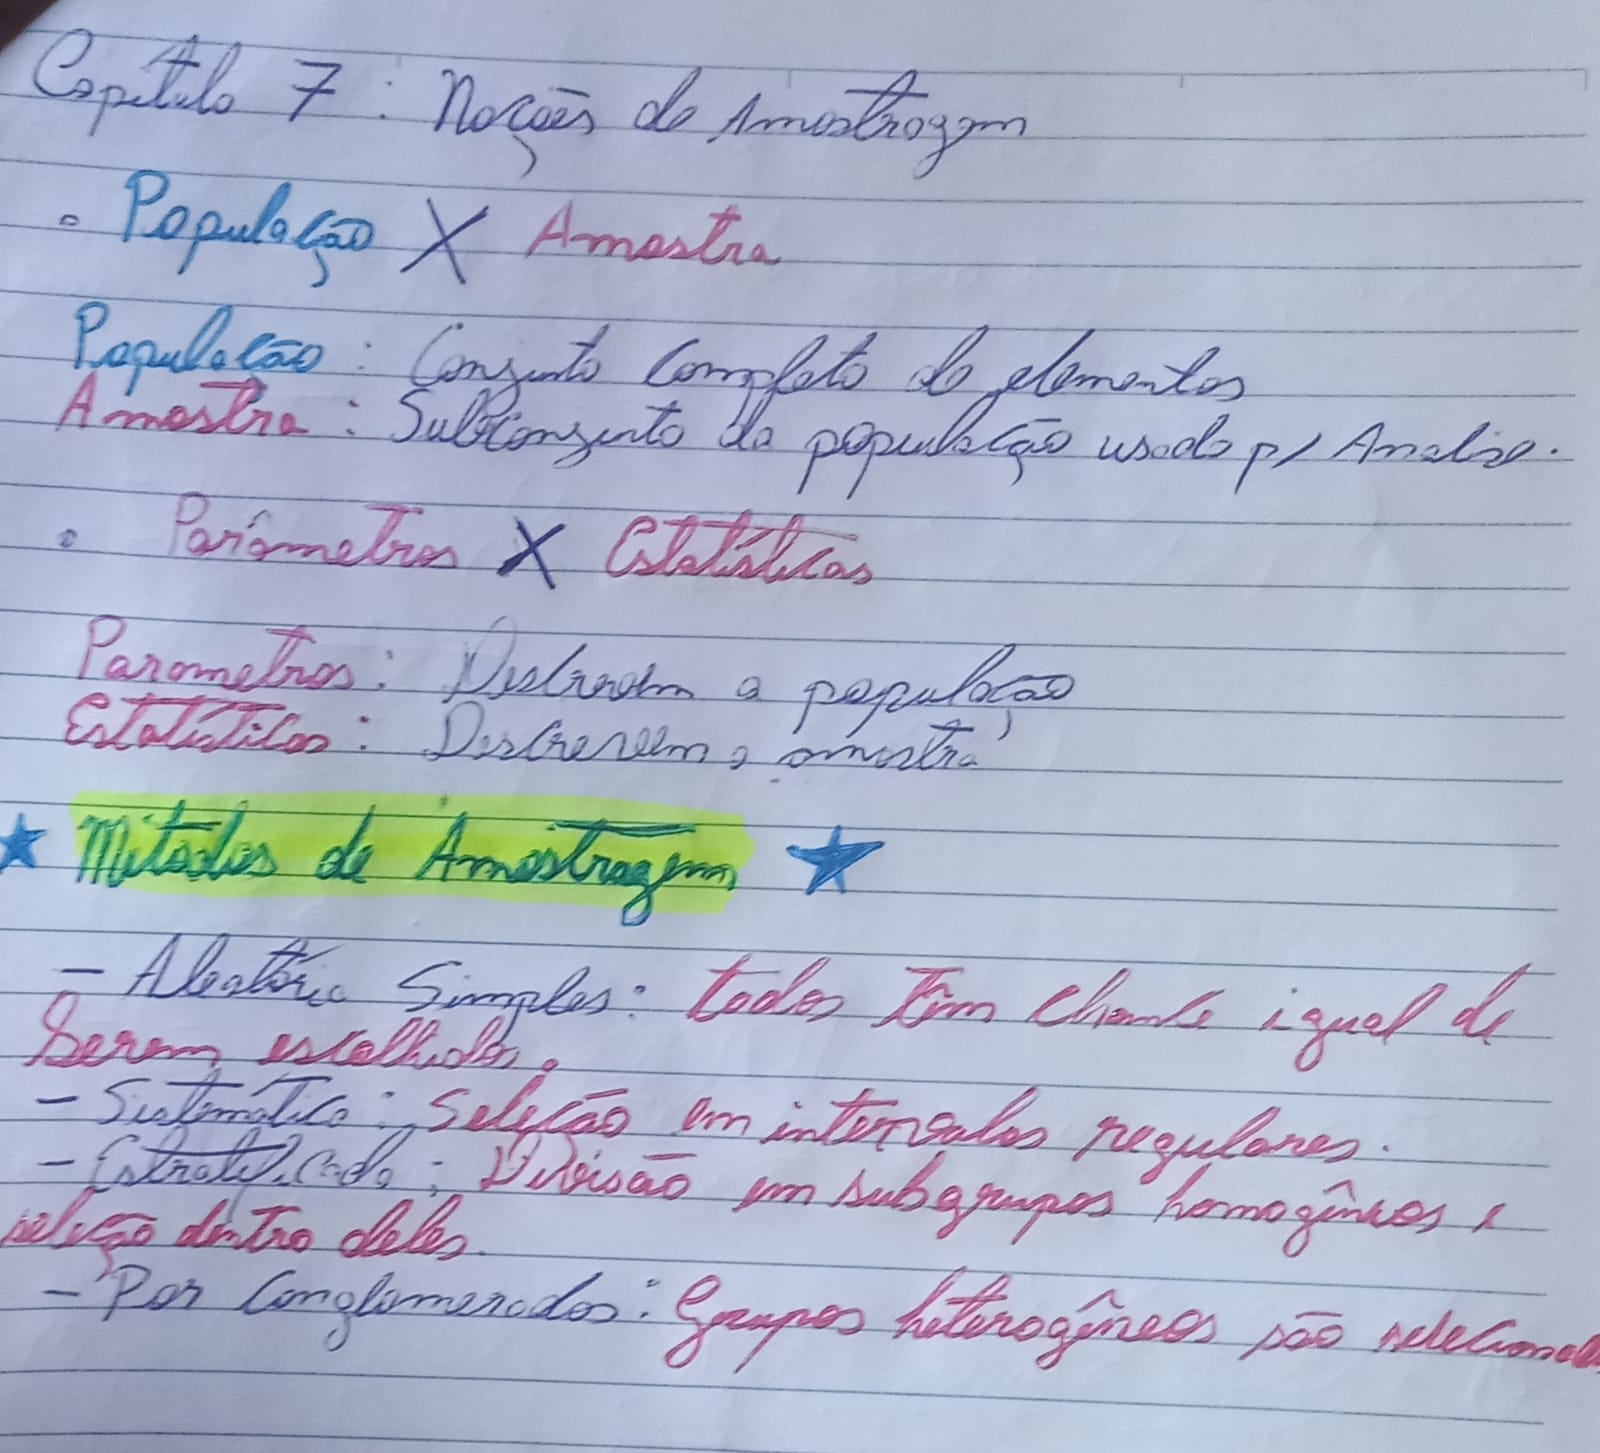 Capítulo 7 : Noções de Amostragem
• População X Amostra
População : Conjunto completo de elementos
Amostra : Subconjunto da população usado p/ Analise.
• Parâmetros X Estatísticas
Parametros : Descrevem a população
Estatísticas : Descrevem a amostra
★ Métodos de Amostragem ★
- Aleatória Simples: todos têm chance igual de
Serem escolhidos.
- Sistemática : Seleção em intervalos regulares.
- Estratificada : Divisão em subgrupos homogêneos e
seleção dentro deles.
- Por Conglomerados : Grupos heterogêneos são